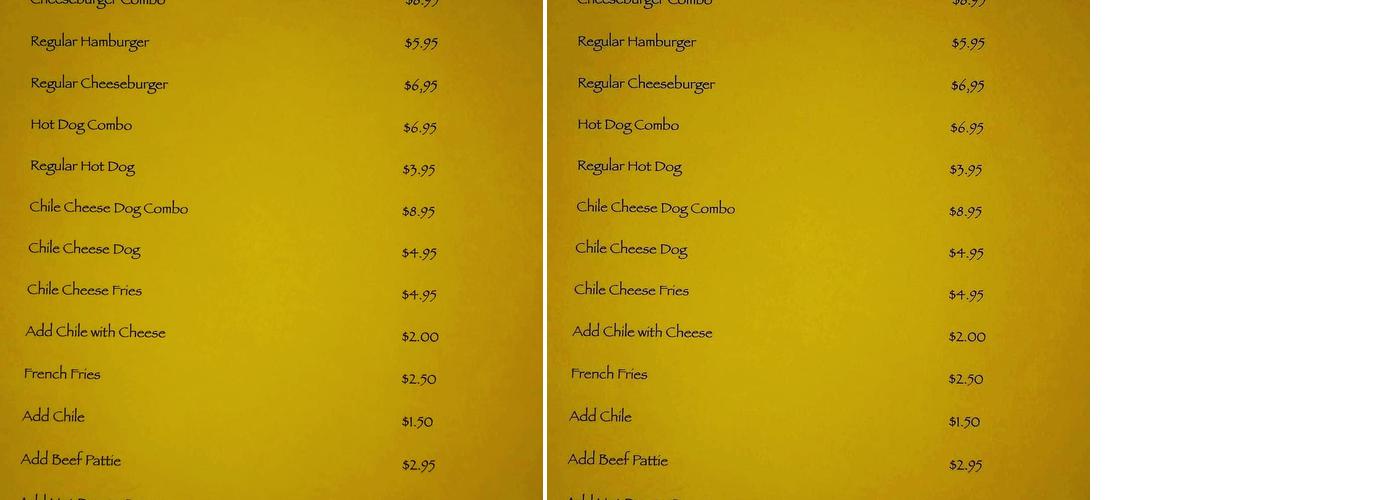 Cheeseburger Combo $8.95
Regular Hamburger $5.95
Regular Cheeseburger $6,95
Hot Dog Combo $6.95
Regular Hot Dog $3.95
Chile Cheese Dog Combo $8.95
Chile Cheese Dog $4.95
Chile Cheese Fries $4.95
Add Chile with Cheese $2.00
French Fries $2.50
Add Chile $1.50
Add Beef Pattie $2.95
Cheeseburger Combo $8.95
Regular Hamburger $5.95
Regular Cheeseburger $6,95
Hot Dog Combo $6.95
Regular Hot Dog $3.95
Chile Cheese Dog Combo $8.95
Chile Cheese Dog $4.95
Chile Cheese Fries $4.95
Add Chile with Cheese $2.00
French Fries $2.50
Add Chile $1.50
Add Beef Pattie $2.95